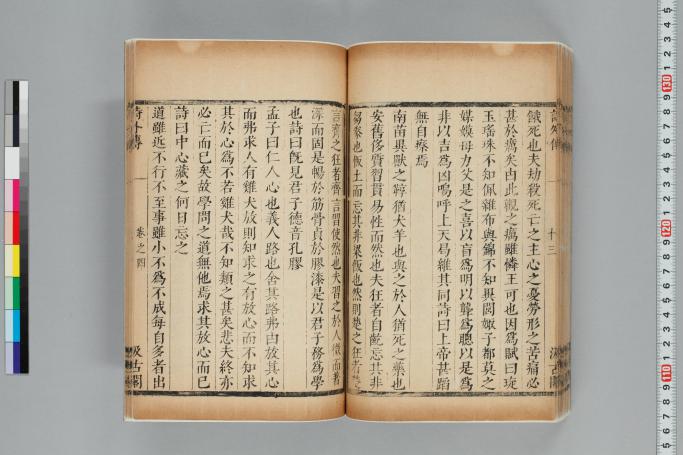 餓死也夫劫殺死亡之主心之憂勞形之苦痛必
甚於癘矣由此觀之癘雖憐王可也因爲賦曰琁
玉瑤珠不知佩雜布與錦不知異閭娵子都莫之
媒嫫母力父是之喜以盲爲明以聾爲聰以是爲
非以吉爲凶嗚呼上天曷維其同詩曰上帝甚蹈
無自瘵焉
南苗異獸之鞹猶犬羊也與之於人猶死之藥也
安舊侈質習貫易性而然也夫狂者自齕忘其非
芻豢也飯土而忘其非粱飯也然則楚之狂者楚
言齊之狂者齊言習使然也夫習之於人微而著
深而固是暢於筋骨貞於膠漆是以君子務爲學
也詩曰既見君子德音孔膠
孟子曰仁人心也義人路也舍其路弗由放其心
而弗求人有雞犬放則知求之有放心而不知求
其於心爲不若雞犬哉不知類之甚矣悲夫終亦
必亡而已矣故學問之道無他焉求其放心而已
詩曰中心藏之何日忘之
道雖近不行不至事雖小不爲不成每自多者出
詩外傳 卷之四 汲古閣